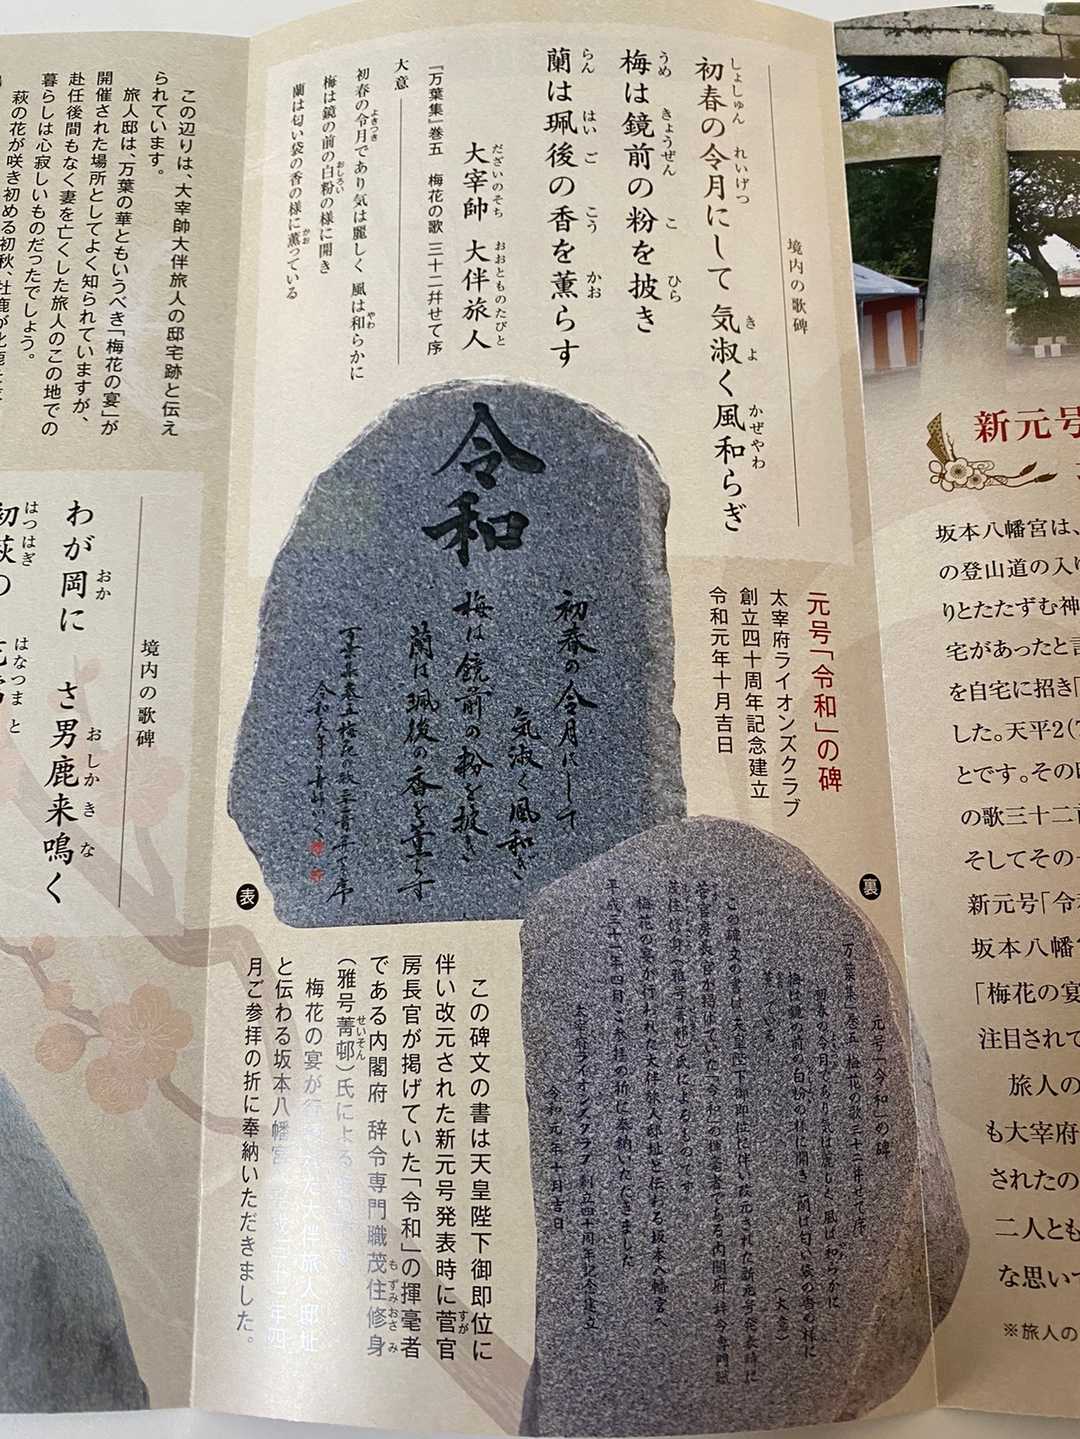 境内の歌碑
初春の令月にして 気淑く風和らぎ
しょしゅん れいげつ きよ かぜやわ
梅は鏡前の粉を披き
うめ きょうぜん こ ひら
蘭は珮後の香を薫らす
らん はいご こう かお
大宰帥 大伴旅人
だざいのそち おおとものたびと
「万葉集」巻五 梅花の歌 三十二并せて序
大意
初春の令月であり 気は麗しく 風は和らかに
よきつき やわ
梅は鏡の前の白粉の様に開き
おしろい
蘭は匂い袋の香の様に薫っている
かお
元号「令和」の碑
太宰府ライオンズクラブ
創立四十周年記念建立
令和元年十月吉日
令和
初春の令月にして
気淑く風和ぎ
梅は鏡前の粉を披き
蘭は珮後の香を薫らす
表
裏
元号「令和」の碑
「万葉集」巻五 梅花の歌三十二并せて序
初春の令月であり 気は麗しく 風は和らかに
梅は鏡の前の白粉の様に開き 蘭は匂い袋の香の様に
薫っている
(大意)
この碑文の書は天皇陛下御即位に伴い改元された新元号発表時に
菅官房長官が掲げていた「令和」の揮毫者である内閣府 辞令専門職
茂住修身(雅号菁邨)氏によるものです
梅花の宴が行われた大伴旅人邸址と伝わる坂本八幡宮へ
平成三十一年四月ご参拝の折に奉納いただきました
太宰府ライオンズクラブ創立四十周年記念建立
令和元年十月吉日
この碑文の書は天皇陛下御即位に
伴い改元された新元号発表時に菅官
すが
房長官が掲げていた「令和」の揮毫者
である内閣府 辞令専門職茂住修身
もずみおさみ
(雅号菁邨)氏による
せいそん
梅花の宴が行われた大伴旅人邸址
と伝わる坂本八幡宮 平成三十一年四
月ご参拝の折に奉納いただきました。
この辺りは、大宰帥大伴旅人の邸宅跡と伝え
られています。
旅人邸は、万葉の華ともいうべき「梅花の宴」が
開催された場所としてよく知られていますが、
赴任後間もなく妻を亡くした旅人のこの地での
暮らしは心寂しいものだったでしょう。
萩の花が咲き初める初秋、牡鹿が
境内の歌碑
わが岡に さ男鹿来鳴く
おか おしかきな
初萩の
はつはぎ はなつまと
新元号
坂本八幡宮は、
の登山道の入
りとたたずむ神
宅があったと言
を自宅に招き「
した。天平2(7
とです。その
の歌三十二
そしてその
新元号「令
坂本八幡
「梅花の宴
注目されて
旅人の
も大宰府
されたの
二人とも
な思いで
※旅人の